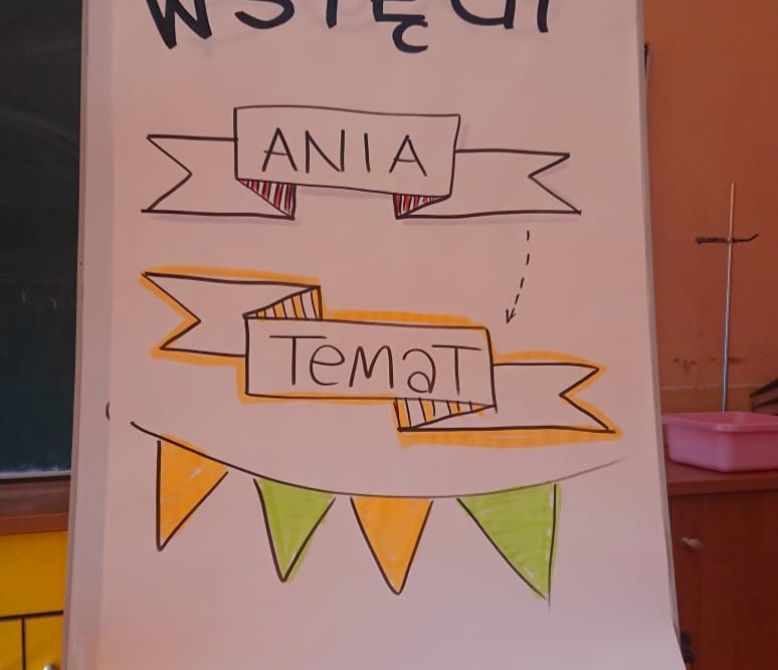 WSTĘGI
ANIA
TEMaT